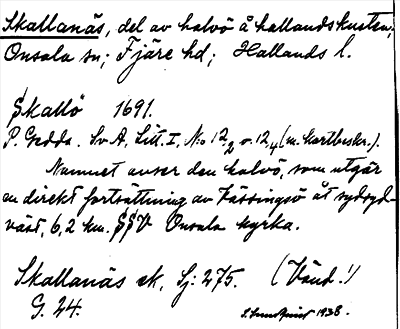 Skallanäs, del av halvö å hallandskusten;
Onsala sn; Fjäre hd; Hallands l.
Skallö 1691.
P. Gedda. Sv A, Litt. I, No 12,2 o. 12,4 (m. kartbeskr.).
Namnet avser den halvö, som utgör
en direkt fortsättning av Kässingsö åt sydsyd-
väst, 6,2 km. SSV Onsala kyrka.
Skallanäs ek, Sj: 275. (Vänd!)
G. 24. S. Lundquist 1938.